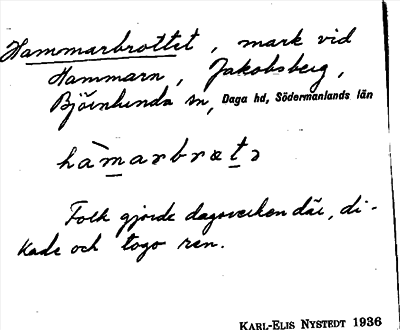 Hammarbrottet, mark vid
Hammarn, Jakobsberg,
Björnlunda sn, Daga hd, Södermanlands län
hàmarbrɷtə
Folk gjorde dagsverken där, di-
kade och togo ren.
KARL-ELIS NYSTEDT 1936